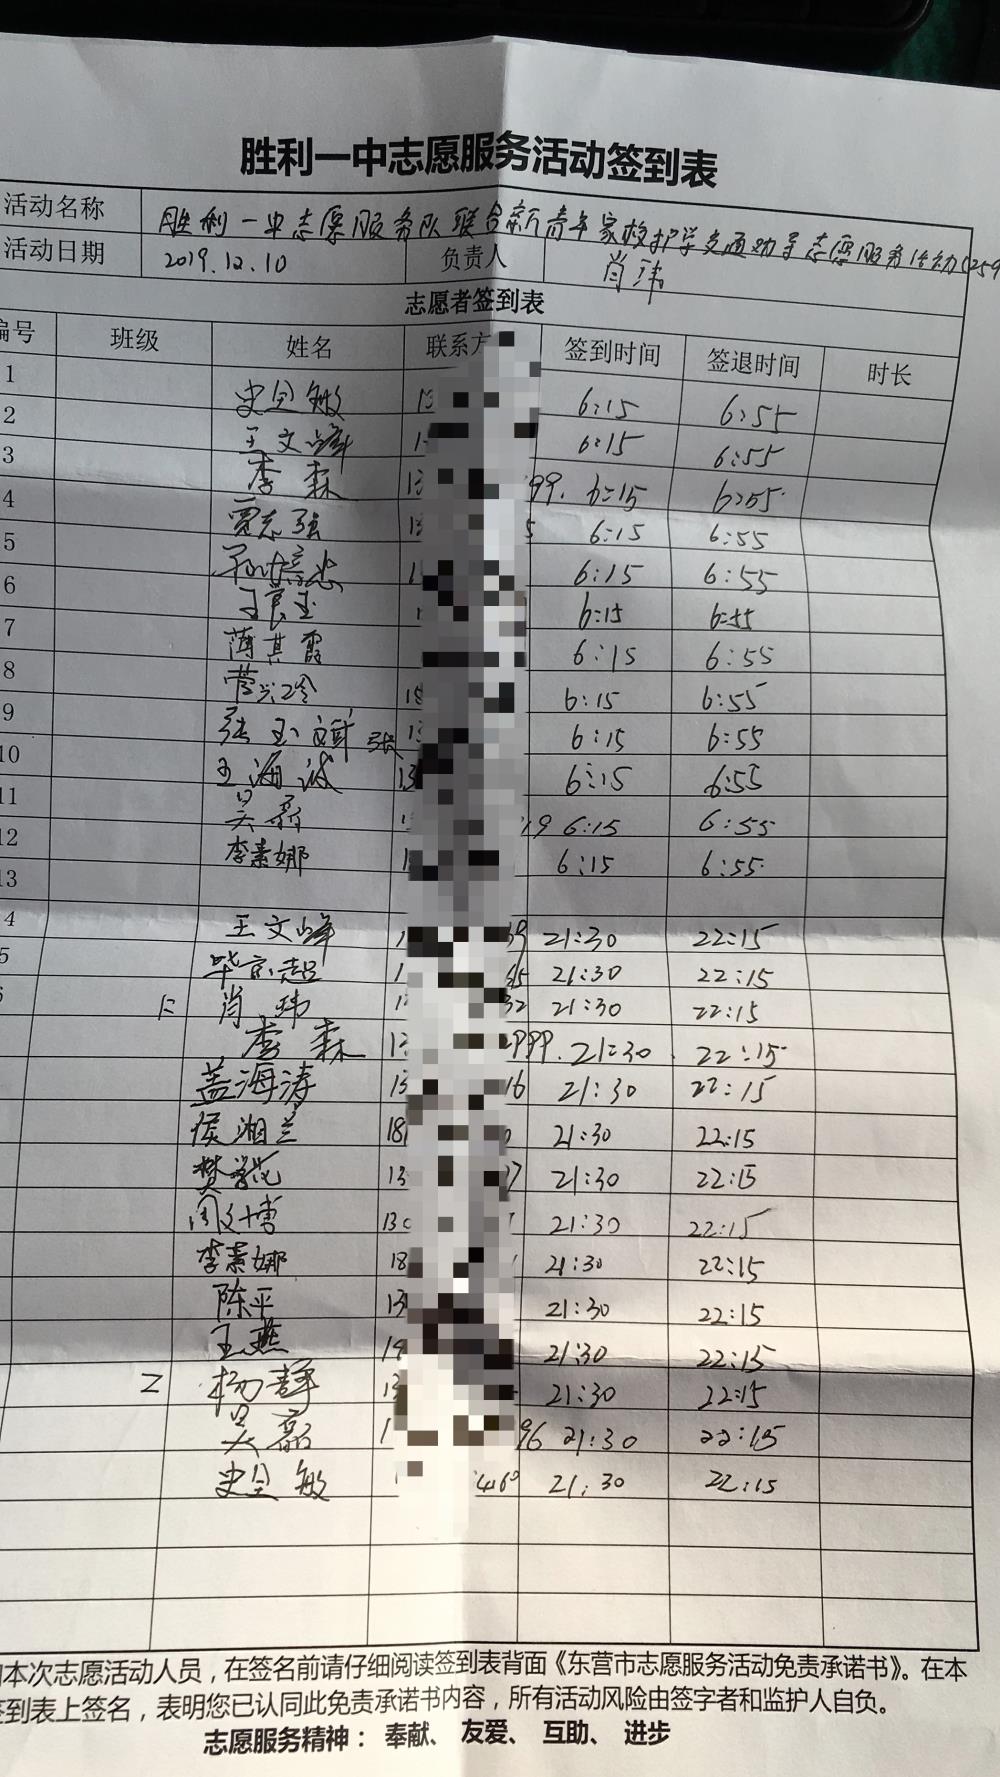 胜利一中志愿服务活动签到表
活动名称 胜利一中志愿服务队联合新青年家校护学交通劝导志愿服务活动(259
活动日期 2019.12.10 负责人 肖玮
志愿者签到表
编号 班级 姓名 联系方 签到时间 签退时间 时长
1 史全敏 13 6:15 6:55
2 王文峰 1 6:15 6:55
3 李森 13 99. 6:15 6:55
4 贾志强 13 5 6:15 6:55
5 1 6:15 6:55
6 6:15 6:55
7 薄其霞 6:15 6:55
8 18 6:15 6:55
9 张玉 张 13 6:15 6:55
10 王海波 13 6:15 6:55
11 吴磊 19 6:15 6:55
12 李素娜 1 6:15 6:55
13
4 王文峰 1 39 21:30 22:15
5 毕京超 1 45 21:30 22:15
仁 肖玮 1 32 21:30 22:15
李森 13 999. 21:30 22:15
盖海涛 13 16 21:30 22:15
侯湘兰 181 21:30 22:15
樊学花 13 7 21:30 22:15
周文博 130 21:30 22:15
李素娜 18 21:30 22:15
陈平 13 21:30 22:15
王燕 21:30 22:15
Z 杨静 13 21:30 22:15
吴磊 1 96 21:30 22:15
史全敏 460 21:30 22:15
本次志愿活动人员，在签名前请仔细阅读签到表背面《东营市志愿服务活动免责承诺书》。在本
签到表上签名，表明您已认同此免责承诺书内容，所有活动风险由签字者和监护人自负。
志愿服务精神： 奉献、 友爱、 互助、 进步